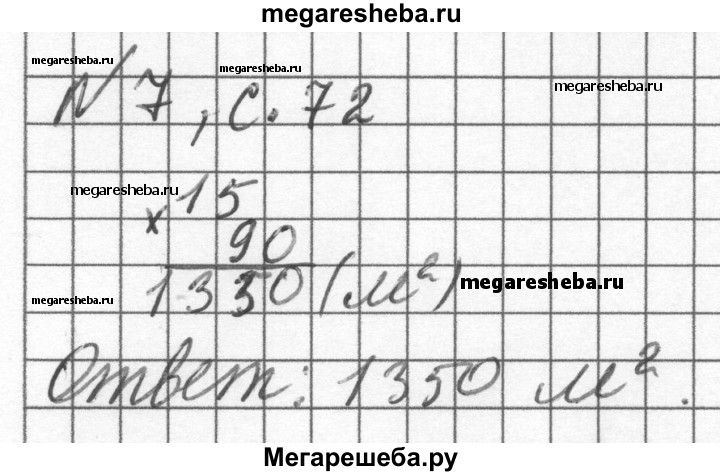 megaresheba.ru
megaresheba.ru megaresheba.ru megaresheba.ru
N 7, с. 72
megaresheba.ru
15
x 90
megaresheba.ru 1350 (м²) megaresheba.ru
Ответ: 1350 м².
Мегарешеба.ру